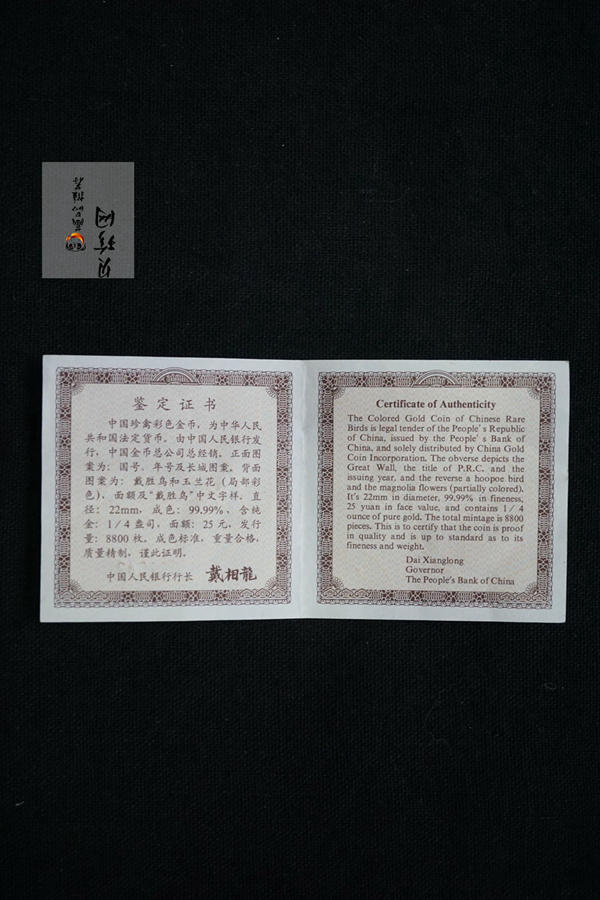 贝珍网
鉴定证书
中国珍禽彩色金币，为中华人民
共和国法定货币。由中国人民银行发
行，中国金币总公司总经销。正面图
案为：国号、年号及长城图案。背面
图案为：戴胜鸟和玉兰花（局部彩
色）、面额及“戴胜鸟”中文字样。直
径：22mm，成色：99.99%，含纯
金：1/4盎司，面额：25元，发行
量：8800枚。成色标准，重量合格，
质量精制，谨此证明。
中国人民银行行长 戴相龍
Certificate of Authenticity
The Colored Gold Coin of Chinese Rare
Birds is legal tender of the People's Republic
of China, issued by the People's Bank of
China, and solely distributed by China Gold
Coin Incorporation. The obverse depicts the
Great Wall, the title of P.R.C. and the
issuing year, and the reverse a hoopoe bird
and the magnolia flowers (partially colored).
It's 22mm in diameter, 99.99% in fineness,
25 yuan in face value, and contains 1/4
ounce of pure gold. The total mintage is 8800
pieces. This is to certify that the coin is proof
in quality and is up to standard as to its
fineness and weight.
Dai Xianglong
Governor
The People's Bank of China